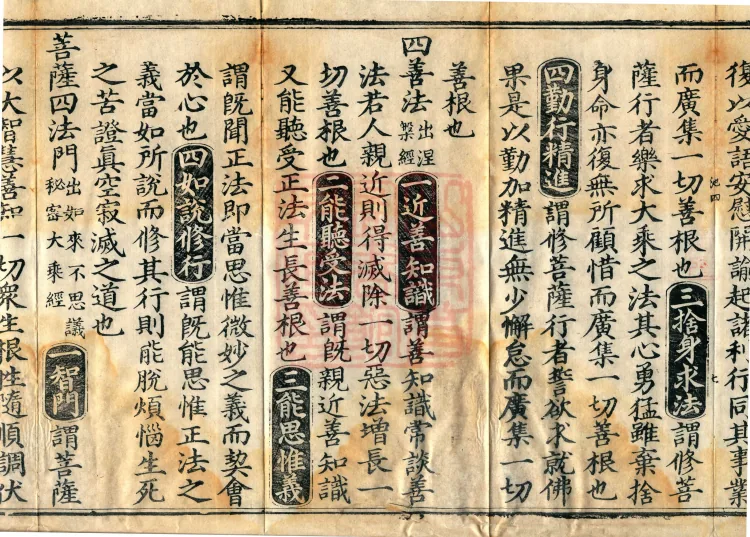 復以愛語安慰開諭起諸利行同其事業
而廣集一切善根也三捨身求法謂修菩
薩行者樂求大乘之法其心勇猛雖棄捨
身命亦復無所顧惜而廣集一切善根也
四勤行精進謂修菩薩行者誓欲求就佛
果是以勤加精進無少懈怠而廣集一切
善根也
四善法出涅槃經一近善知識謂善知識常談善
法若人親近則得滅除一切惡法增長一
切善根也二能聽受法謂旣親近善知識
又能聽受正法生長善根也三能思惟義
謂旣聞正法即當思惟微妙之義而契會
於心也四如說修行謂旣能思惟正法之
義當如所說而修其行則能脫煩惱生死
之苦證眞空寂滅之道也
菩薩四法門出如來不思議秘密大乘經一智門謂菩薩
以大智慧善知一切衆生根性隨順調伏